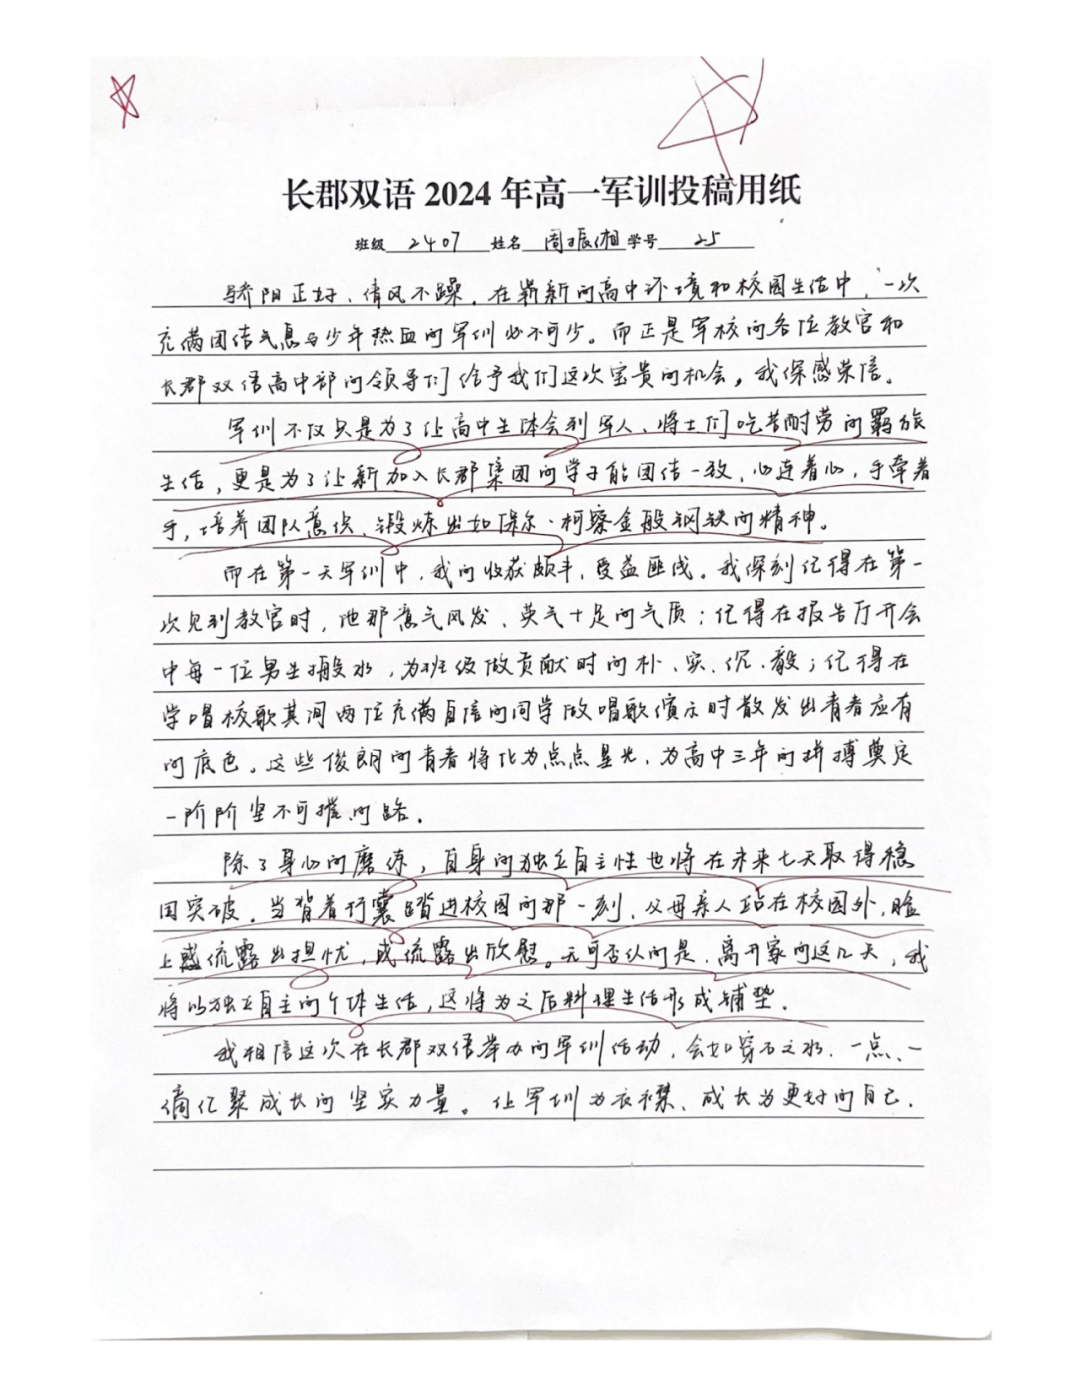 长郡双语 2024 年高一军训投稿用纸
班级 2407 姓名 周振湘 学号 25
骄阳正好、清风不躁。在崭新的高中环境和校园生活中，一次
充满团结气息与少年热血的军训必不可少。而正是军校的各位教官和
长郡双语高中部的领导们给予我们这次宝贵的机会，我深感荣信。
军训不仅只是为了让高中生体会到军人、将士们吃苦耐劳的羁旅
生活，更是为了让新加入长郡集团的学子能团结一致、心连着心，手牵着
手，培养团队意识、锻炼出如保尔·柯察金般钢铁的精神。
而在第一天军训中，我的收获颇丰，受益匪浅。我深刻记得在第一
次见到教官时，他那意气风发、英气十足的气质；记得在报告厅开会
中每一位男生搬水，为班级做贡献时的朴、实、沉、毅；记得在
学唱校歌其间两位充满自信的同学做唱歌演示时散发出青春应有
的底色。这些俊朗的青春将化为点点星光、为高中三年的拼搏奠定
一阶阶坚不可摧的路。
除了身心的磨练，自身的独立自主性也将在未来七天取得稳
固突破。当背着行囊踏进校园的那一刻、父母亲人站在校园外，脸
上或流露出担忧，或流露出欣慰。无可否认的是、离开家的这几天，我
将以独立自主的个体生活，这将为之后料理生活形成铺垫。
我相信这次在长郡双语举办的军训活动，会如穿石之水、一点、一
滴汇聚成长的坚实力量。让军训为衣襟、成长为更好的自己。